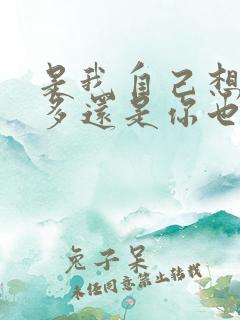 是我自己想
多還是你也
兔子呆
未经同意禁止转载